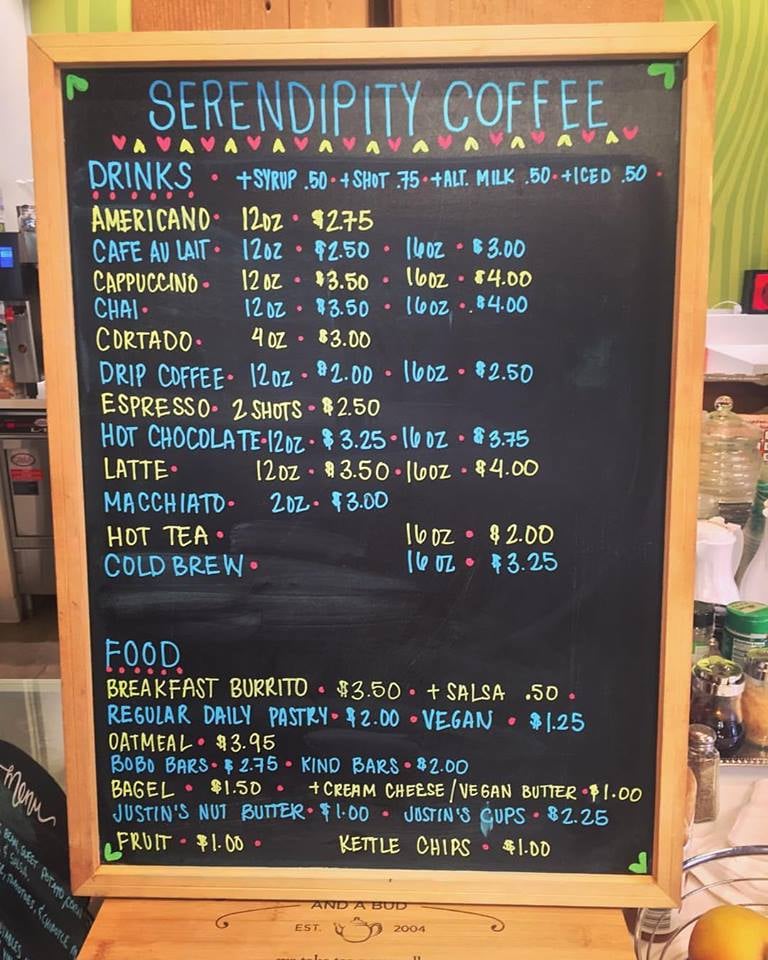 SERENDIPITY COFFEE
DRINKS • +SYRUP .50 • +SHOT .75 • +ALT. MILK .50 • +ICED .50 •
AMERICANO • 12oz • $2.75
CAFE AU LAIT • 12oz • $2.50 • 16oz • $3.00
CAPPUCCINO • 12oz • $3.50 • 16oz • $4.00
CHAI • 12oz • $3.50 • 16oz • $4.00
CORTADO • 4oz • $3.00
DRIP COFFEE • 12oz • $2.00 • 16oz • $2.50
ESPRESSO • 2 SHOTS • $2.50
HOT CHOCOLATE • 12oz • $3.25 • 16oz • $3.75
LATTE • 12oz • $3.50 • 16oz • $4.00
MACCHIATO • 2oz • $3.00
HOT TEA • 16oz • $2.00
COLD BREW • 16oz • $3.25
FOOD
BREAKFAST BURRITO • $3.50 • + SALSA .50 •
REGULAR DAILY PASTRY • $2.00 • VEGAN • $1.25
OATMEAL • $3.95
BOBO BARS • $2.75 • KIND BARS • $2.00
BAGEL • $1.50 • +CREAM CHEESE/VEGAN BUTTER • $1.00
JUSTIN'S NUT BUTTER • $1.00 • JUSTIN'S CUPS • $2.25
FRUIT • $1.00 • KETTLE CHIPS • $1.00
AND A BUD
EST. 2004
menu